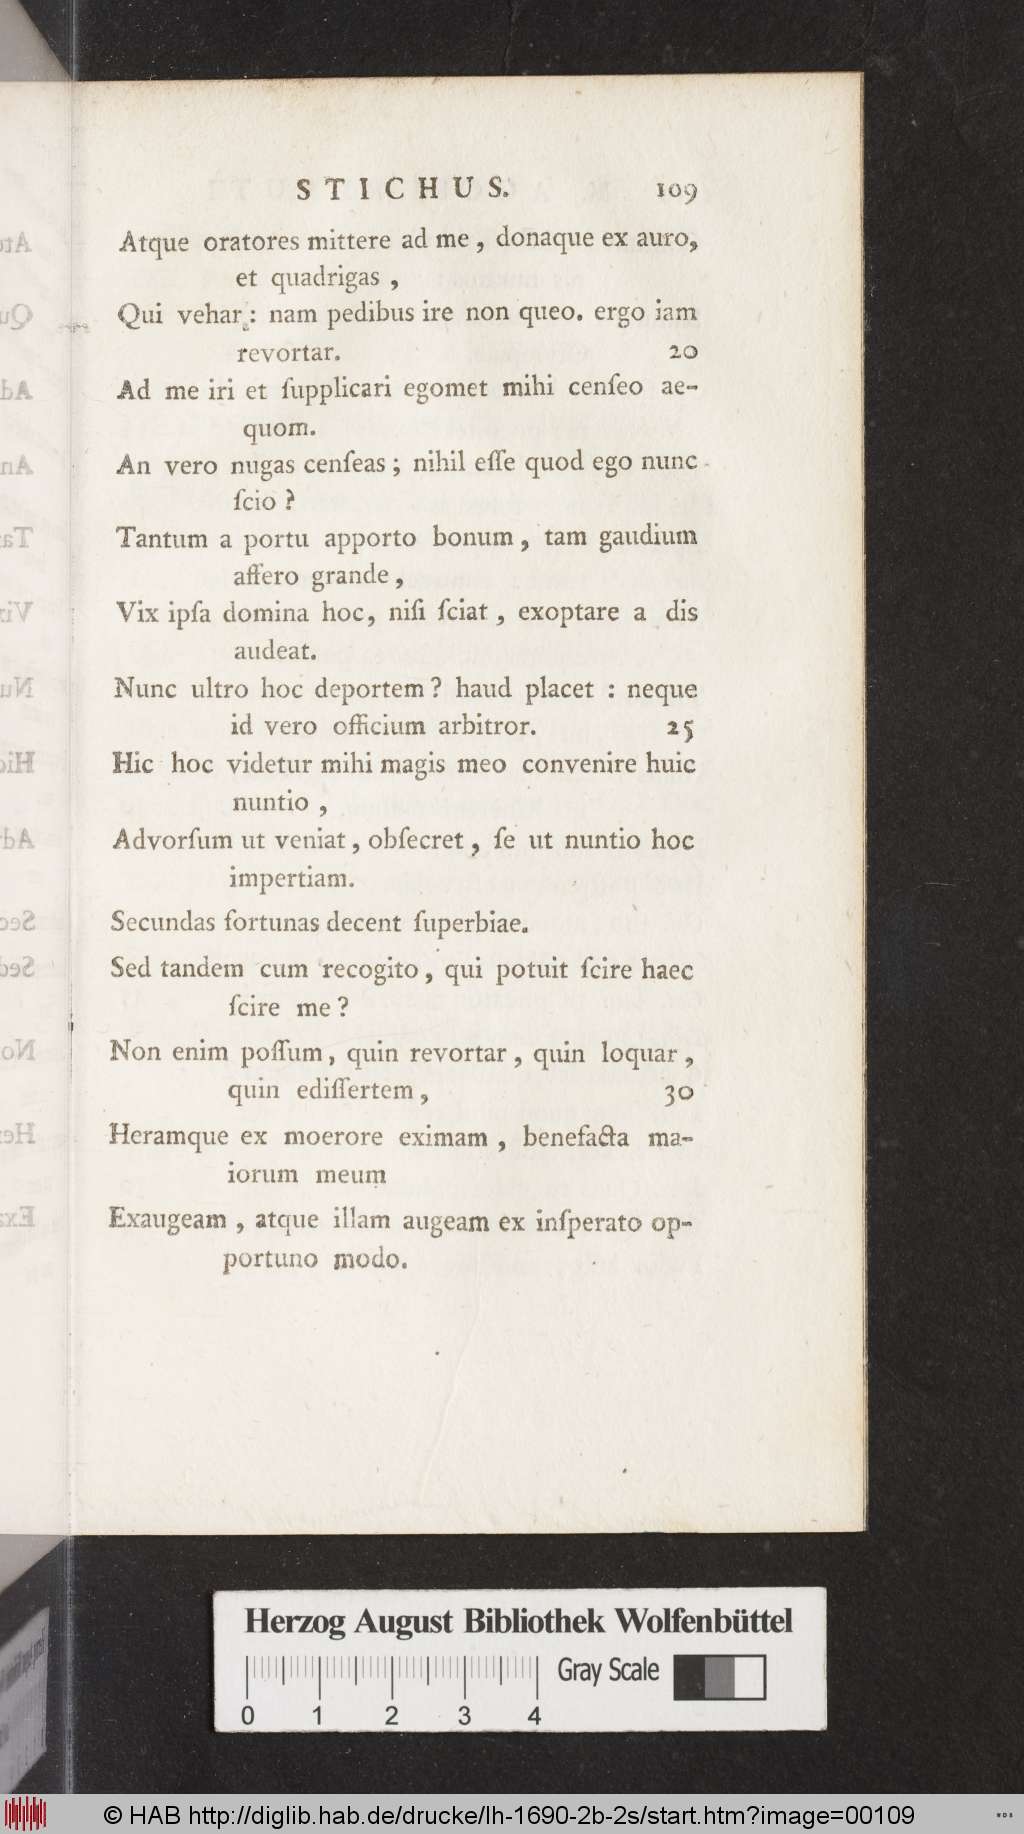 STICHUS. 109
Atque oratores mittere ad me, donaque ex auro,
et quadrigas,
Qui vehar: nam pedibus ire non queo. ergo iam
revortar. 20
Ad me iri et ſupplicari egomet mihi cenſeo ae-
quom.
An vero nugas cenſeas; nihil eſſe quod ego nunc
ſcio?
Tantum a portu apporto bonum, tam gaudium
affero grande,
Vix ipſa domina hoc, niſi ſciat, exoptare a dis
audeat.
Nunc ultro hoc deportem? haud placet: neque
id vero officium arbitror. 25
Hic hoc videtur mihi magis meo convenire huic
nuntio,
Advorſum ut veniat, obſecret, ſe ut nuntio hoc
impertiam.
Secundas fortunas decent ſuperbiae.
Sed tandem cum recogito, qui potuit ſcire haec
ſcire me?
Non enim poſſum, quin revortar, quin loquar,
quin ediſſertem, 30
Heramque ex moerore eximam, benefacta ma-
iorum meum
Exaugeam, atque illam augeam ex inſperato op-
portuno modo.
Herzog August Bibliothek Wolfenbüttel
Gray Scale
0 1 2 3 4
© HAB http://diglib.hab.de/drucke/lh-1690-2b-2s/start.htm?image=00109